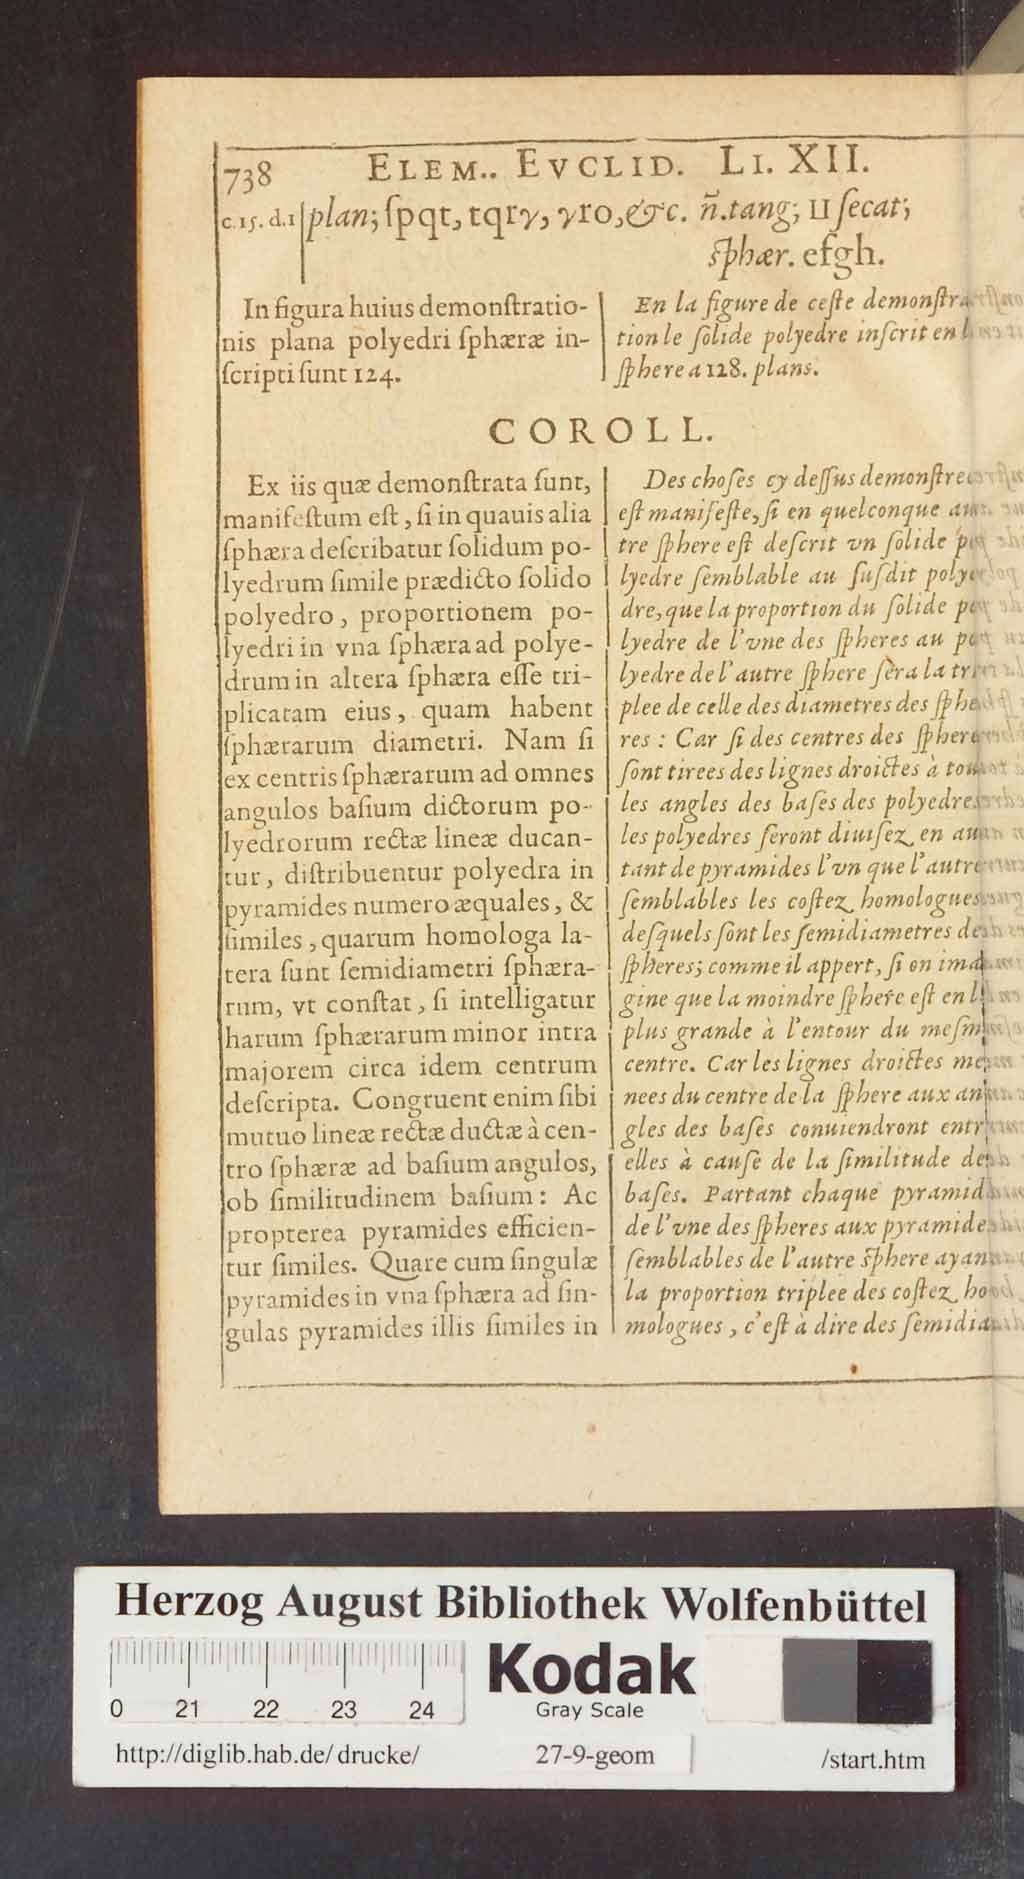 738 ELEM.. EVCLID. LI. XII.
c.15.d.1 plan; ſpqt, tqrγ, γro,&c. ñ.tang; ⊔ ſecat;
ſphær. efgh.
In figura huius demonſtratio-
nis plana polyedri ſphæræ in-
ſcripti ſunt 124.
En la figure de ceſte demonſtra
tion le ſolide polyedre inſcrit en l
ſphere a 128. plans.
COROLL.
Ex iis quæ demonſtrata ſunt,
manifeſtum eſt, ſi in quauis alia
ſphæra deſcribatur ſolidum po-
lyedrum ſimile prædicto ſolido
polyedro, proportionem po-
lyedri in vna ſphæra ad polye-
drum in altera ſphæra eſſe tri-
plicatam eius, quam habent
ſphærarum diametri. Nam ſi
ex centris ſphærarum ad omnes
angulos baſium dictorum po-
lyedrorum rectæ lineæ ducan-
tur, diſtribuentur polyedra in
pyramides numero æquales, &
ſimiles, quarum homologa la-
tera ſunt ſemidiametri ſphæra-
rum, vt conſtat, ſi intelligatur
harum ſphærarum minor intra
majorem circa idem centrum
deſcripta. Congruent enim ſibi
mutuo lineæ rectæ ductæ à cen-
tro ſphæræ ad baſium angulos,
ob ſimilitudinem baſium: Ac
propterea pyramides efficien-
tur ſimiles. Quare cum ſingulæ
pyramides in vna ſphæra ad ſin-
gulas pyramides illis ſimiles in
Des choſes cy deſſus demonſtree
eſt manifeſte, ſi en quelconque au
tre ſphere eſt deſcrit vn ſolide po
lyedre ſemblable au ſuſdit polye
dre, que la proportion du ſolide po
lyedre de l'vne des ſpheres au po
lyedre de l'autre ſphere ſera la tri
plee de celle des diametres des ſphe
res: Car ſi des centres des ſphere
ſont tirees des lignes droictes à tou
les angles des baſes des polyedres
les polyedres ſeront diuiſez en au
tant de pyramides l'vn que l'autre
ſemblables les coſtez homologues
deſquels ſont les ſemidiametres de
ſpheres; comme il appert, ſi on ima
gine que la moindre ſphere eſt en l
plus grande à l'entour du meſm
centre. Car les lignes droictes me
nees du centre de la ſphere aux an
gles des baſes conuiendront entr
elles à cauſe de la ſimilitude de
baſes. Partant chaque pyramid
de l'vne des ſpheres aux pyramide
ſemblables de l'autre ſphere ayan
la proportion triplee des coſtez ho
mologues, c'eſt à dire des ſemidia
Herzog August Bibliothek Wolfenbüttel
Kodak
Gray Scale
0 21 22 23 24
http://diglib.hab.de/drucke/ 27-9-geom /start.htm